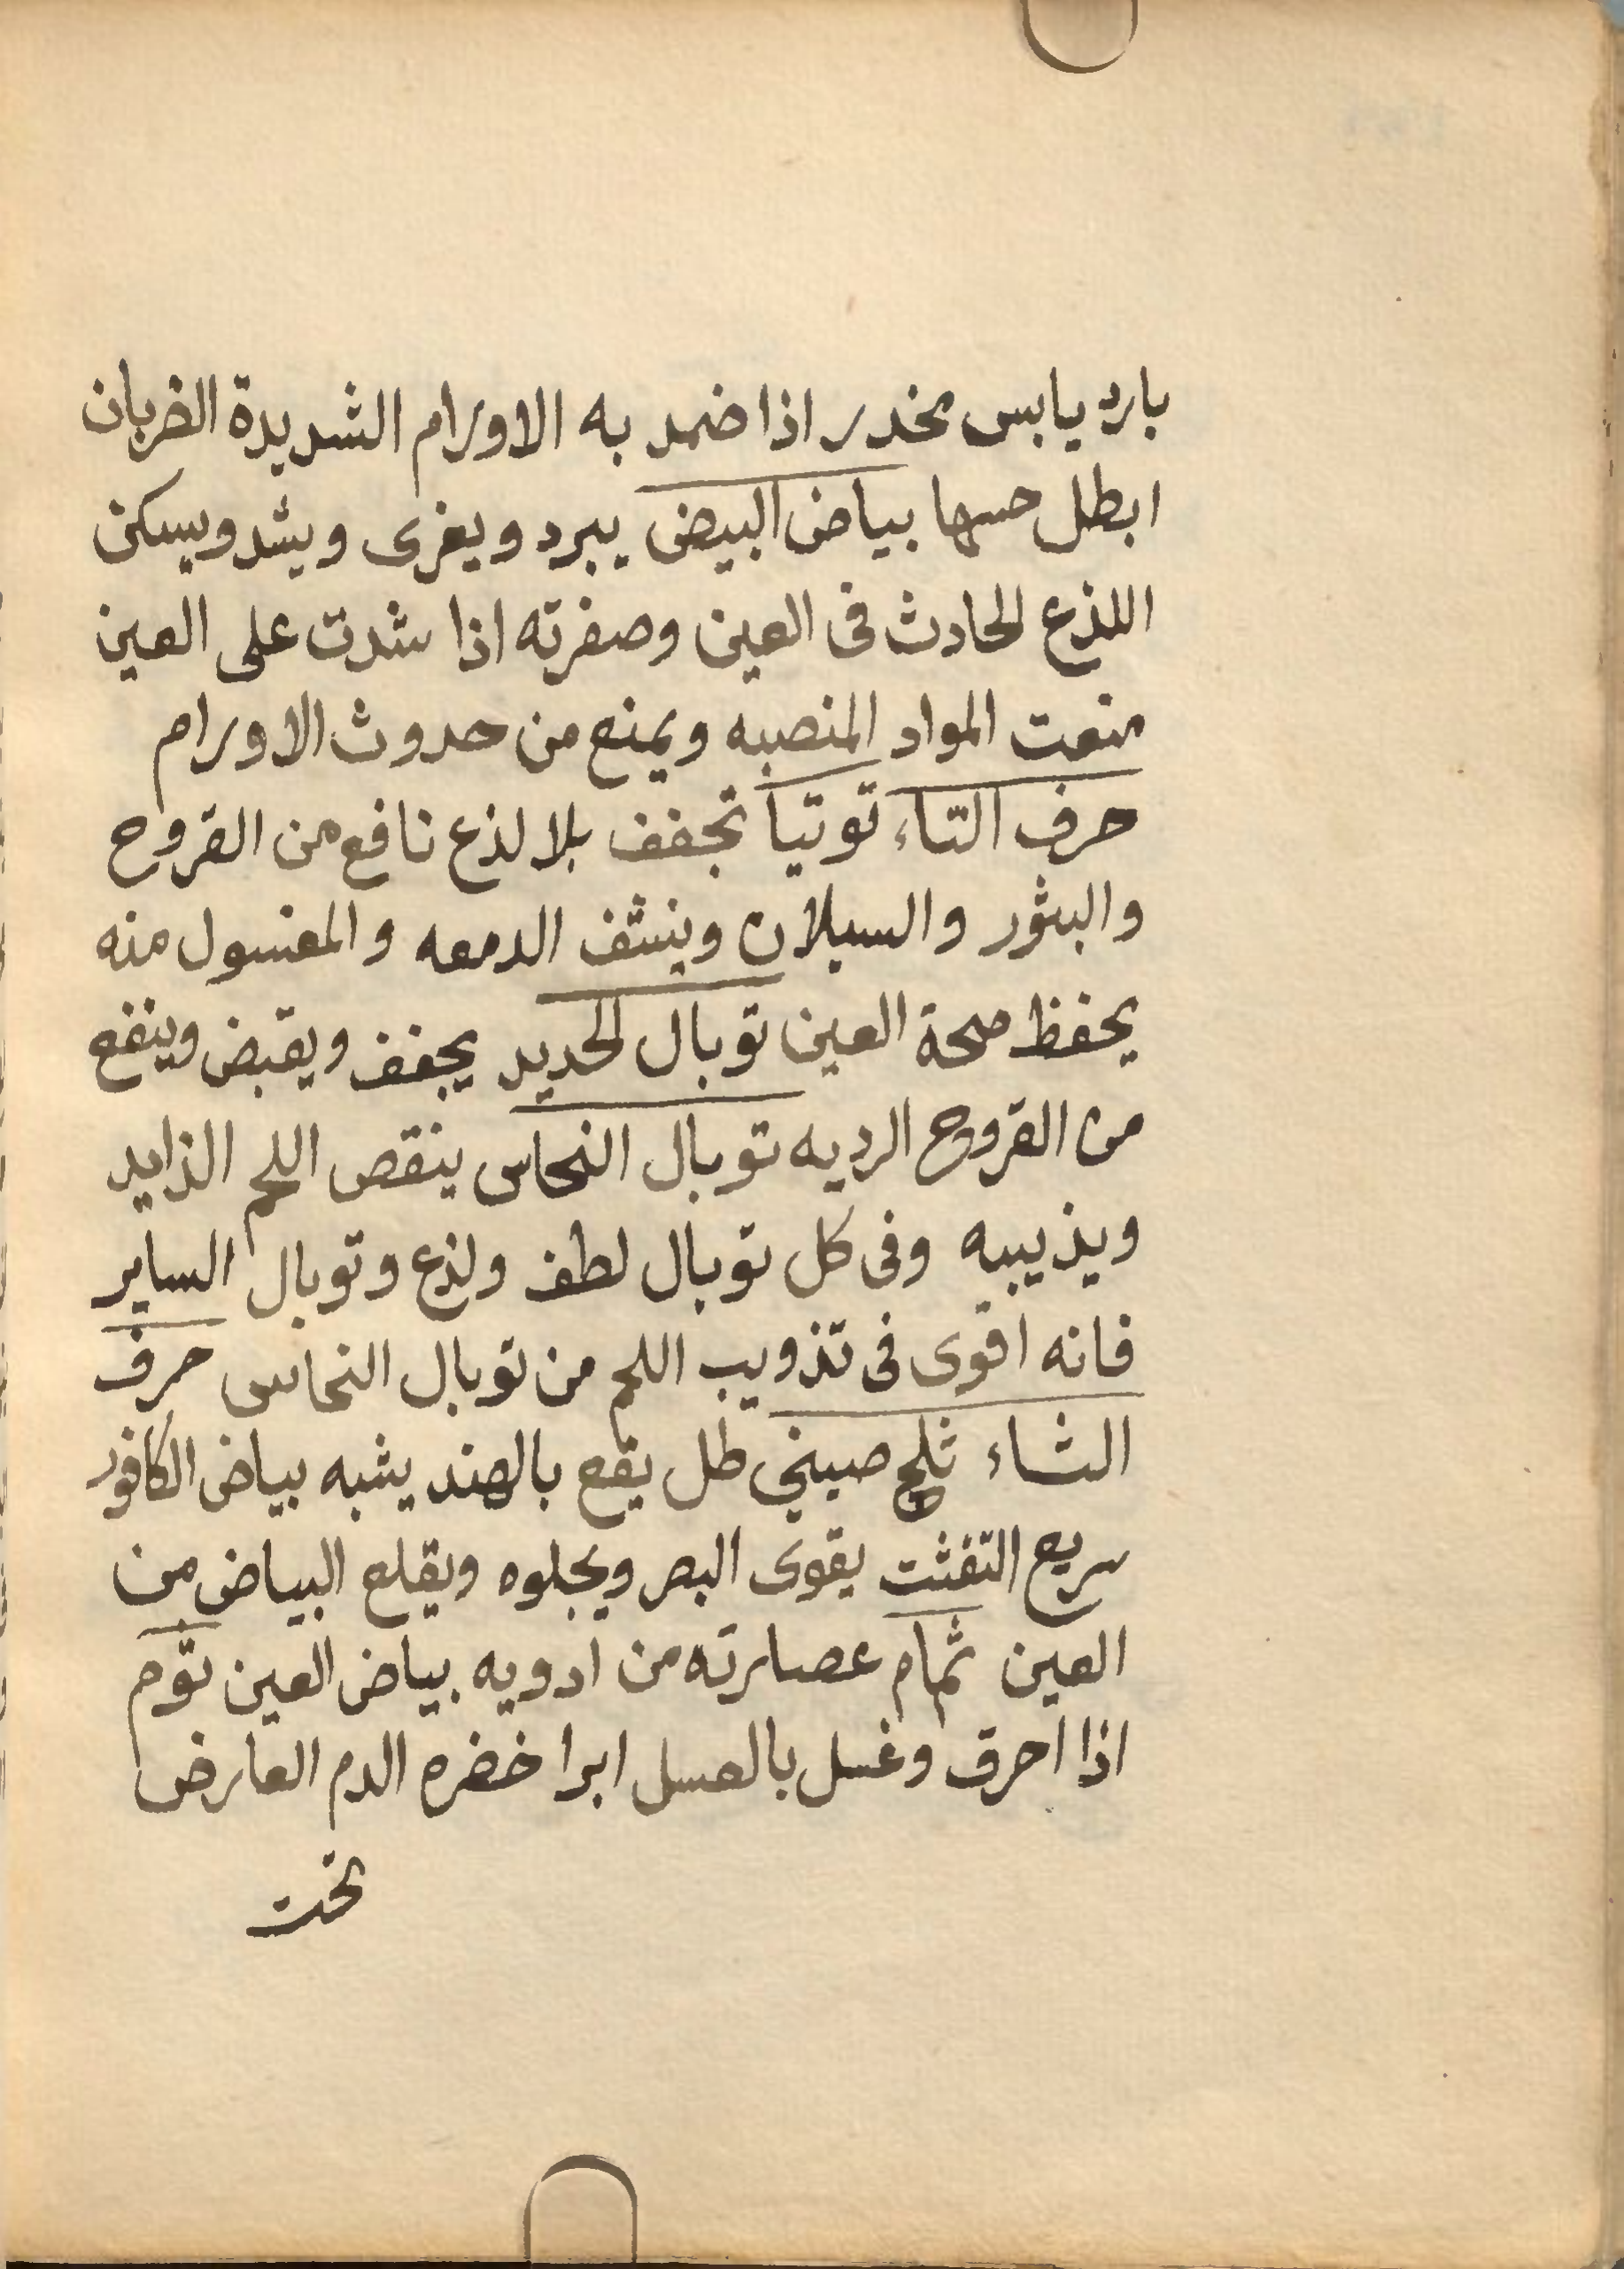 بارد يابس مخدر اذا ضمد به الاورام الشديدة الضربان
ابطل حسها بياض البيض يبرد ويغرى ويشد ويسكن
اللذع الحادث فى العين وصفرته اذا شدت على العين
منعت المواد المنصبه ويمنع من حدوث الاورام
حرف التاء توتيا تجفف بلا لذع نافع من القروح
والبثور والسيلان وينشف الدمعه والمغسول منه
يحفظ صحة العين توبال الحديد يجفف ويقبض وينفع
من القروح الرديه توبال النحاس ينقص اللحم الزايد
ويذيبه وفى كل توبال لطف ولذع وتوبال الساير
فانه اقوى فى تذويب اللحم من توبال النحاس حرف
الثاء ثلج صينى طل يقع بالهند يشبه بياض الكافور
سريع التفتت يقوى البصر ويجلوه ويقلع البياض من
العين ثمام عصارته من ادويه بياض العين توم
اذا احرق وغسل بالعسل ابرا خضره الدم العارض
تحت